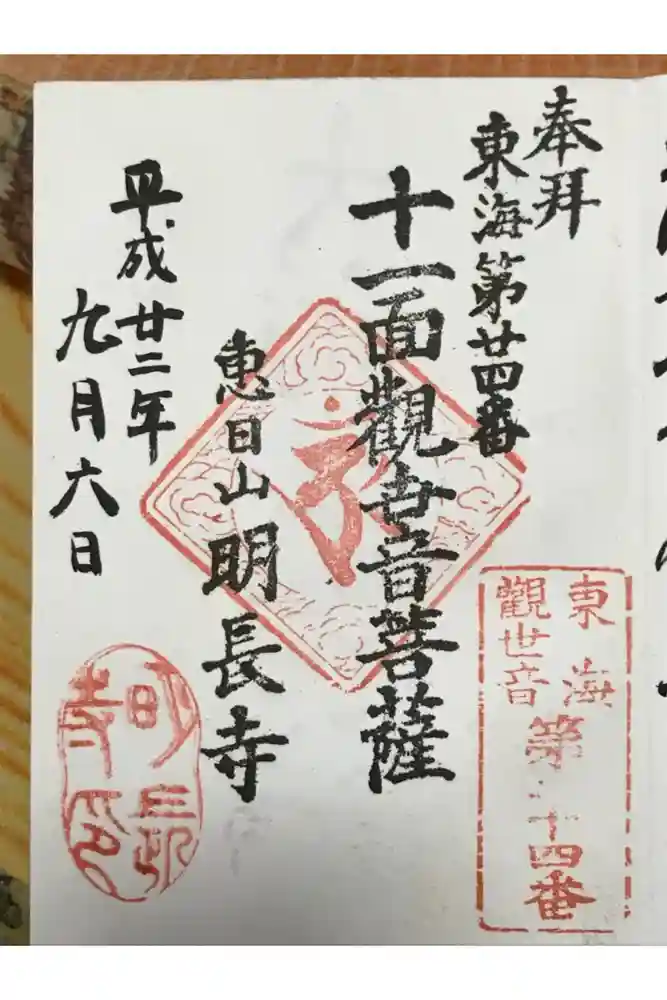 奉拝
東海第廿四番
十一面觀世音菩薩
恵日山明長寺
平成廿二年
九月六日
東海
觀世音
第二十四番
明長
寺印